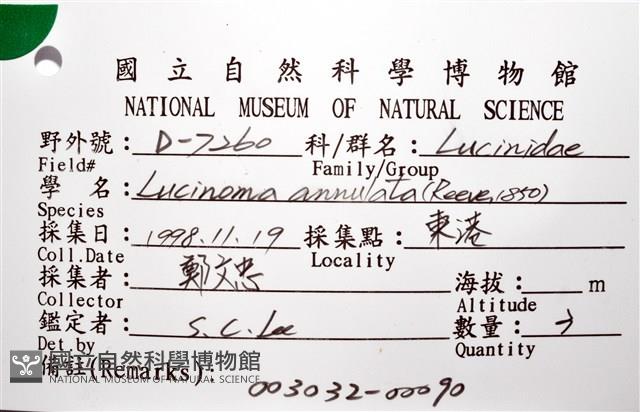 國立自然科學博物館
NATIONAL MUSEUM OF NATURAL SCIENCE
野外號: D-7260 科/群名: Lucinidae
Field# Family/Group
學 名: Lucinoma annulata (Reeve, 1850)
Species
採集日: 1998.11.19 採集點: 東港
Coll.Date Locality
採集者: 鄭文忠 海拔: m
Collector Altitude
鑑定者: S. C. Lee 數量:
Det.by Quantity
備註(Remarks):
國立自然科學博物館
NATIONAL MUSEUM OF NATURAL SCIENCE
003032-00090